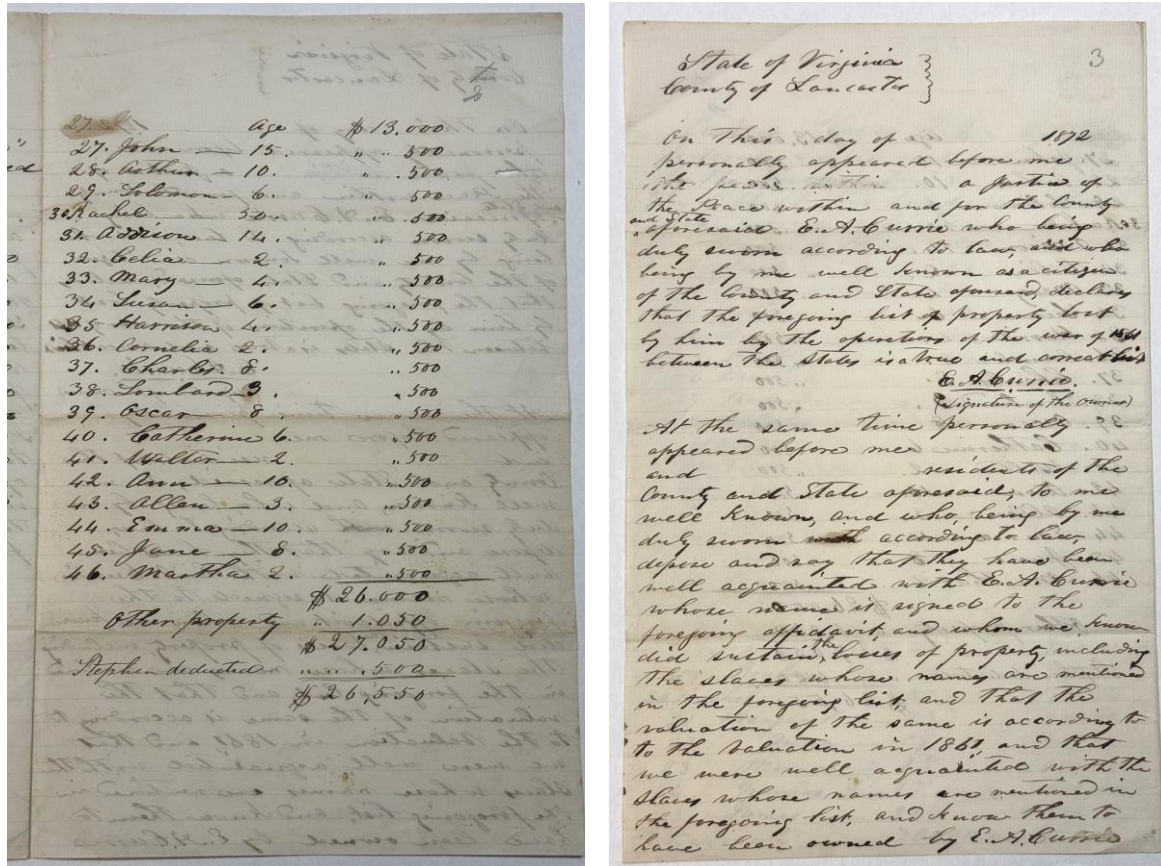 27.
Age $ 13.000
27. John — 15. " " 500
28. Arthur — 10. " 500
29. Solomon — 6. " 500
30 Rachel 50. " 500
31. Addison 14. 500
32. Celia — 2. " 500
33. Mary — 4. " 500
34 Susan — 6. " 500
35 Harrison 4. " 500
36. Cornelia 2. " 500
37. Charles 8. " 500
38. Lombard 3. " 500
39. Oscar — 8 " 500
40. Catherine 6. " 500
41. Walter — 2. " 500
42. Ann — 10. " 500
43. Allen — 3. " 500
44. Emma — 10. " 500
45. Jane — 8. " 500
46. Martha 2. " 500
$ 26.000
Other property " 1.050
$ 27.050
Stephen deducted " " " 500
$ 26,550
3
State of Virginia
County of Lancaster
On this day of 1872
personally appeared before me
a Justice of
the Peace within and for the County
and State
aforesaid E. A. Currie who being
duly sworn according to law, and who
being by me well known as a citizen
of the County and State aforesaid, declares
that the foregoing list of property lost
by him by the operations of the war of 1861
between the States is a true and correct list
E. A. Currie.
(Signature of the owner)
At the same time personally
appeared before me
and residents of the
County and State aforesaid, to me
well known, and who, being by me
duly sworn according to law,
depose and say that they have been
well acquainted with E. A. Currie
whose name is signed to the
foregoing affidavit, and whom we know
did sustain the losses of property, including
the slaves whose names are mentioned
in the foregoing list, and that the
valuation of the same is according to
to the valuation in 1861, and that
we were well acquainted with the
slaves whose names are mentioned in
the foregoing list, and know them to
have been owned by E. A. Currie